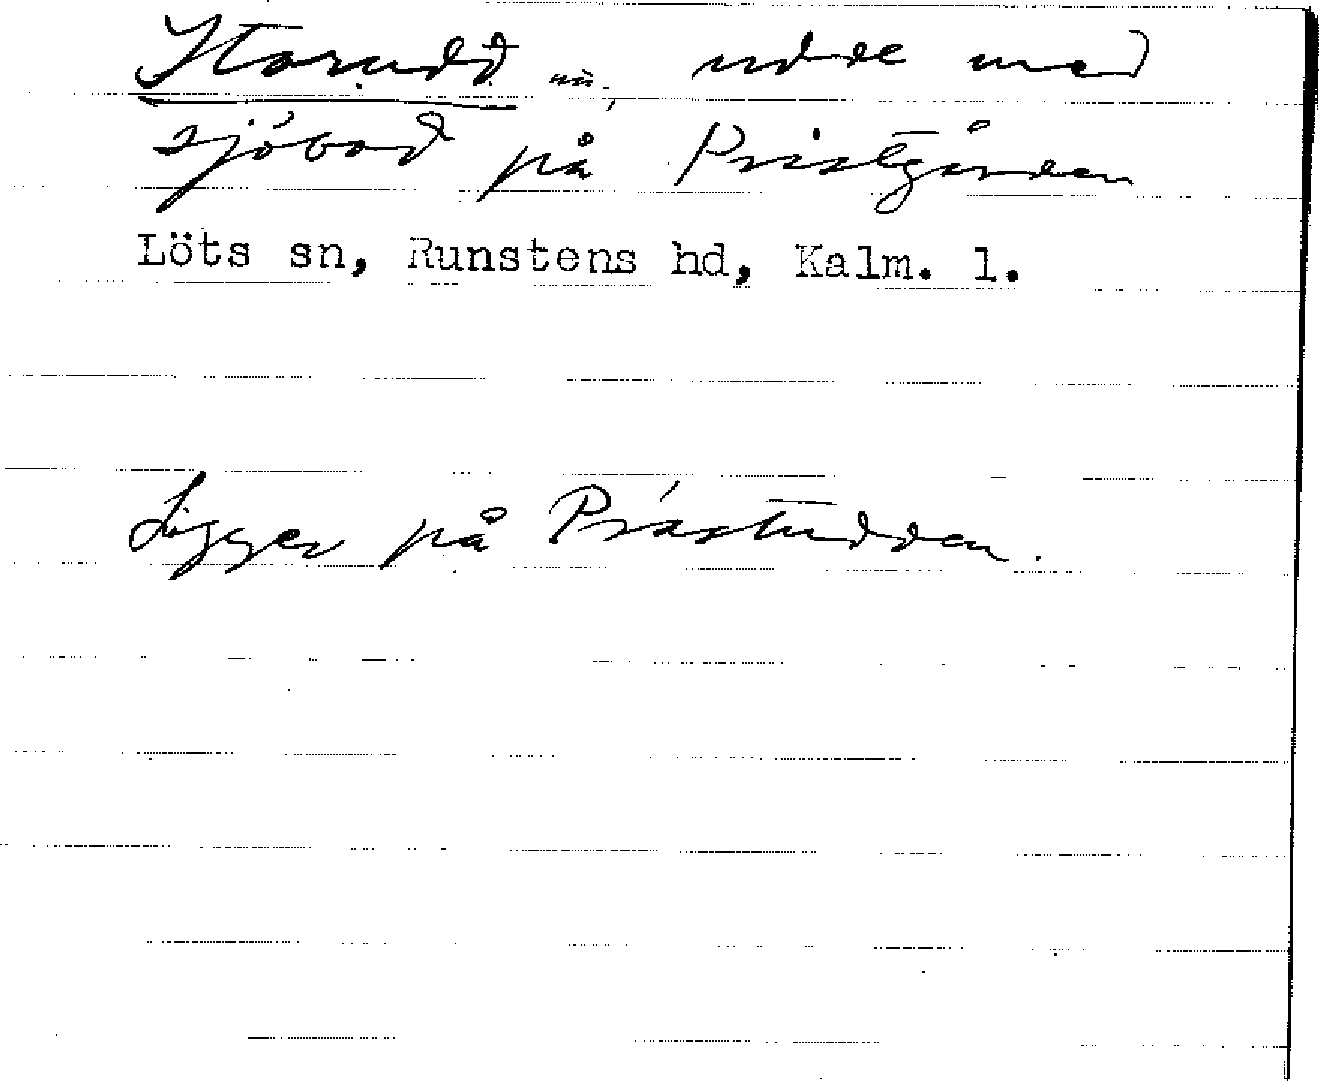 Storudd, udde med
sjöbod på Prästgården
Löts sn, Runstens hd, Kalm. l.
Ligger på Prästudden.